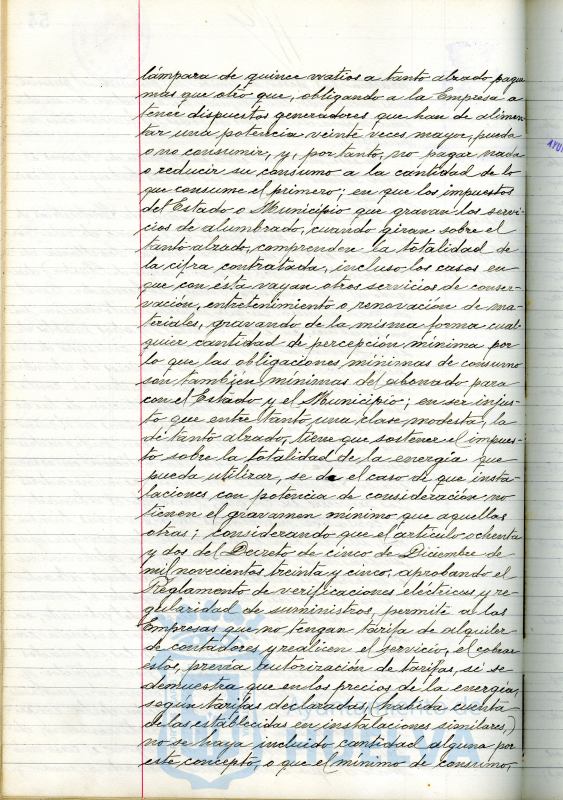 lámpara de quince watios a tanto alzado pague
mas que otro que, obligando a la Empresa a
tener dispuestos generadores que han de alimen
tar una potencia veinte veces mayor, pueda
o no consumir, y, por tanto, no pagar nada
o reducir su consumo a la cantidad de lo
que consume el primero; en que los impuestos
del Estado o Municipio que gravan los servi-
cios de alumbrado, cuando giran sobre el
tanto alzado, comprenden la totalidad de
la cifra contratada, incluso los casos en
que con esta vayan otros servicios de conser-
vación, entretenimiento o renovación de ma-
teriales, gravando de la misma forma cual-
quier cantidad de percepción mínima por
lo que las obligaciones mínimas de consumo
son tambien mínimas del abonado para
con el Estado y el Municipio; en ser injus-
to que entre tanto una clase modesta, la
de tanto alzado, tiene que sostener el impues-
to sobre la totalidad de la energía que
pueda utilizar, se de el caso de que insta-
laciones con potencia de consideración no
tienen el gravamen mínimo que aquellas
otras; considerando que el artículo ochenta
y dos del Decreto de cinco de Diciembre de
mil novecientos treinta y cinco, aprobando el
Reglamento de verificaciones eléctricas y re-
gularidad de suministros, permite a las
Empresas que no tengan tarifa de alquiler
de contadores y realicen el servicio, el cobrar
estos, previa autorización de tarifas, si se
demuestra que en los precios de la energía,
según tarifas declaradas, (habida cuenta
de las establecidas en instalaciones similares,)
no se haya incluido cantidad alguna por
este concepto, o que el mínimo de consumo,